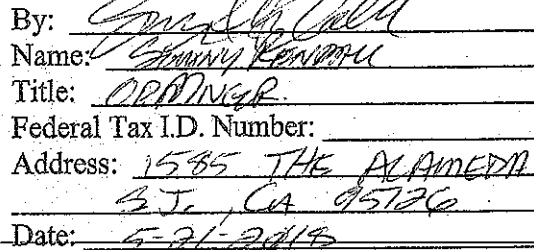 By:
Name: KENDALL
Title:
Federal Tax I.D. Number:
Address: 1585 THE ALAMEDA
S.J., CA 95126
Date: 5-21-2018